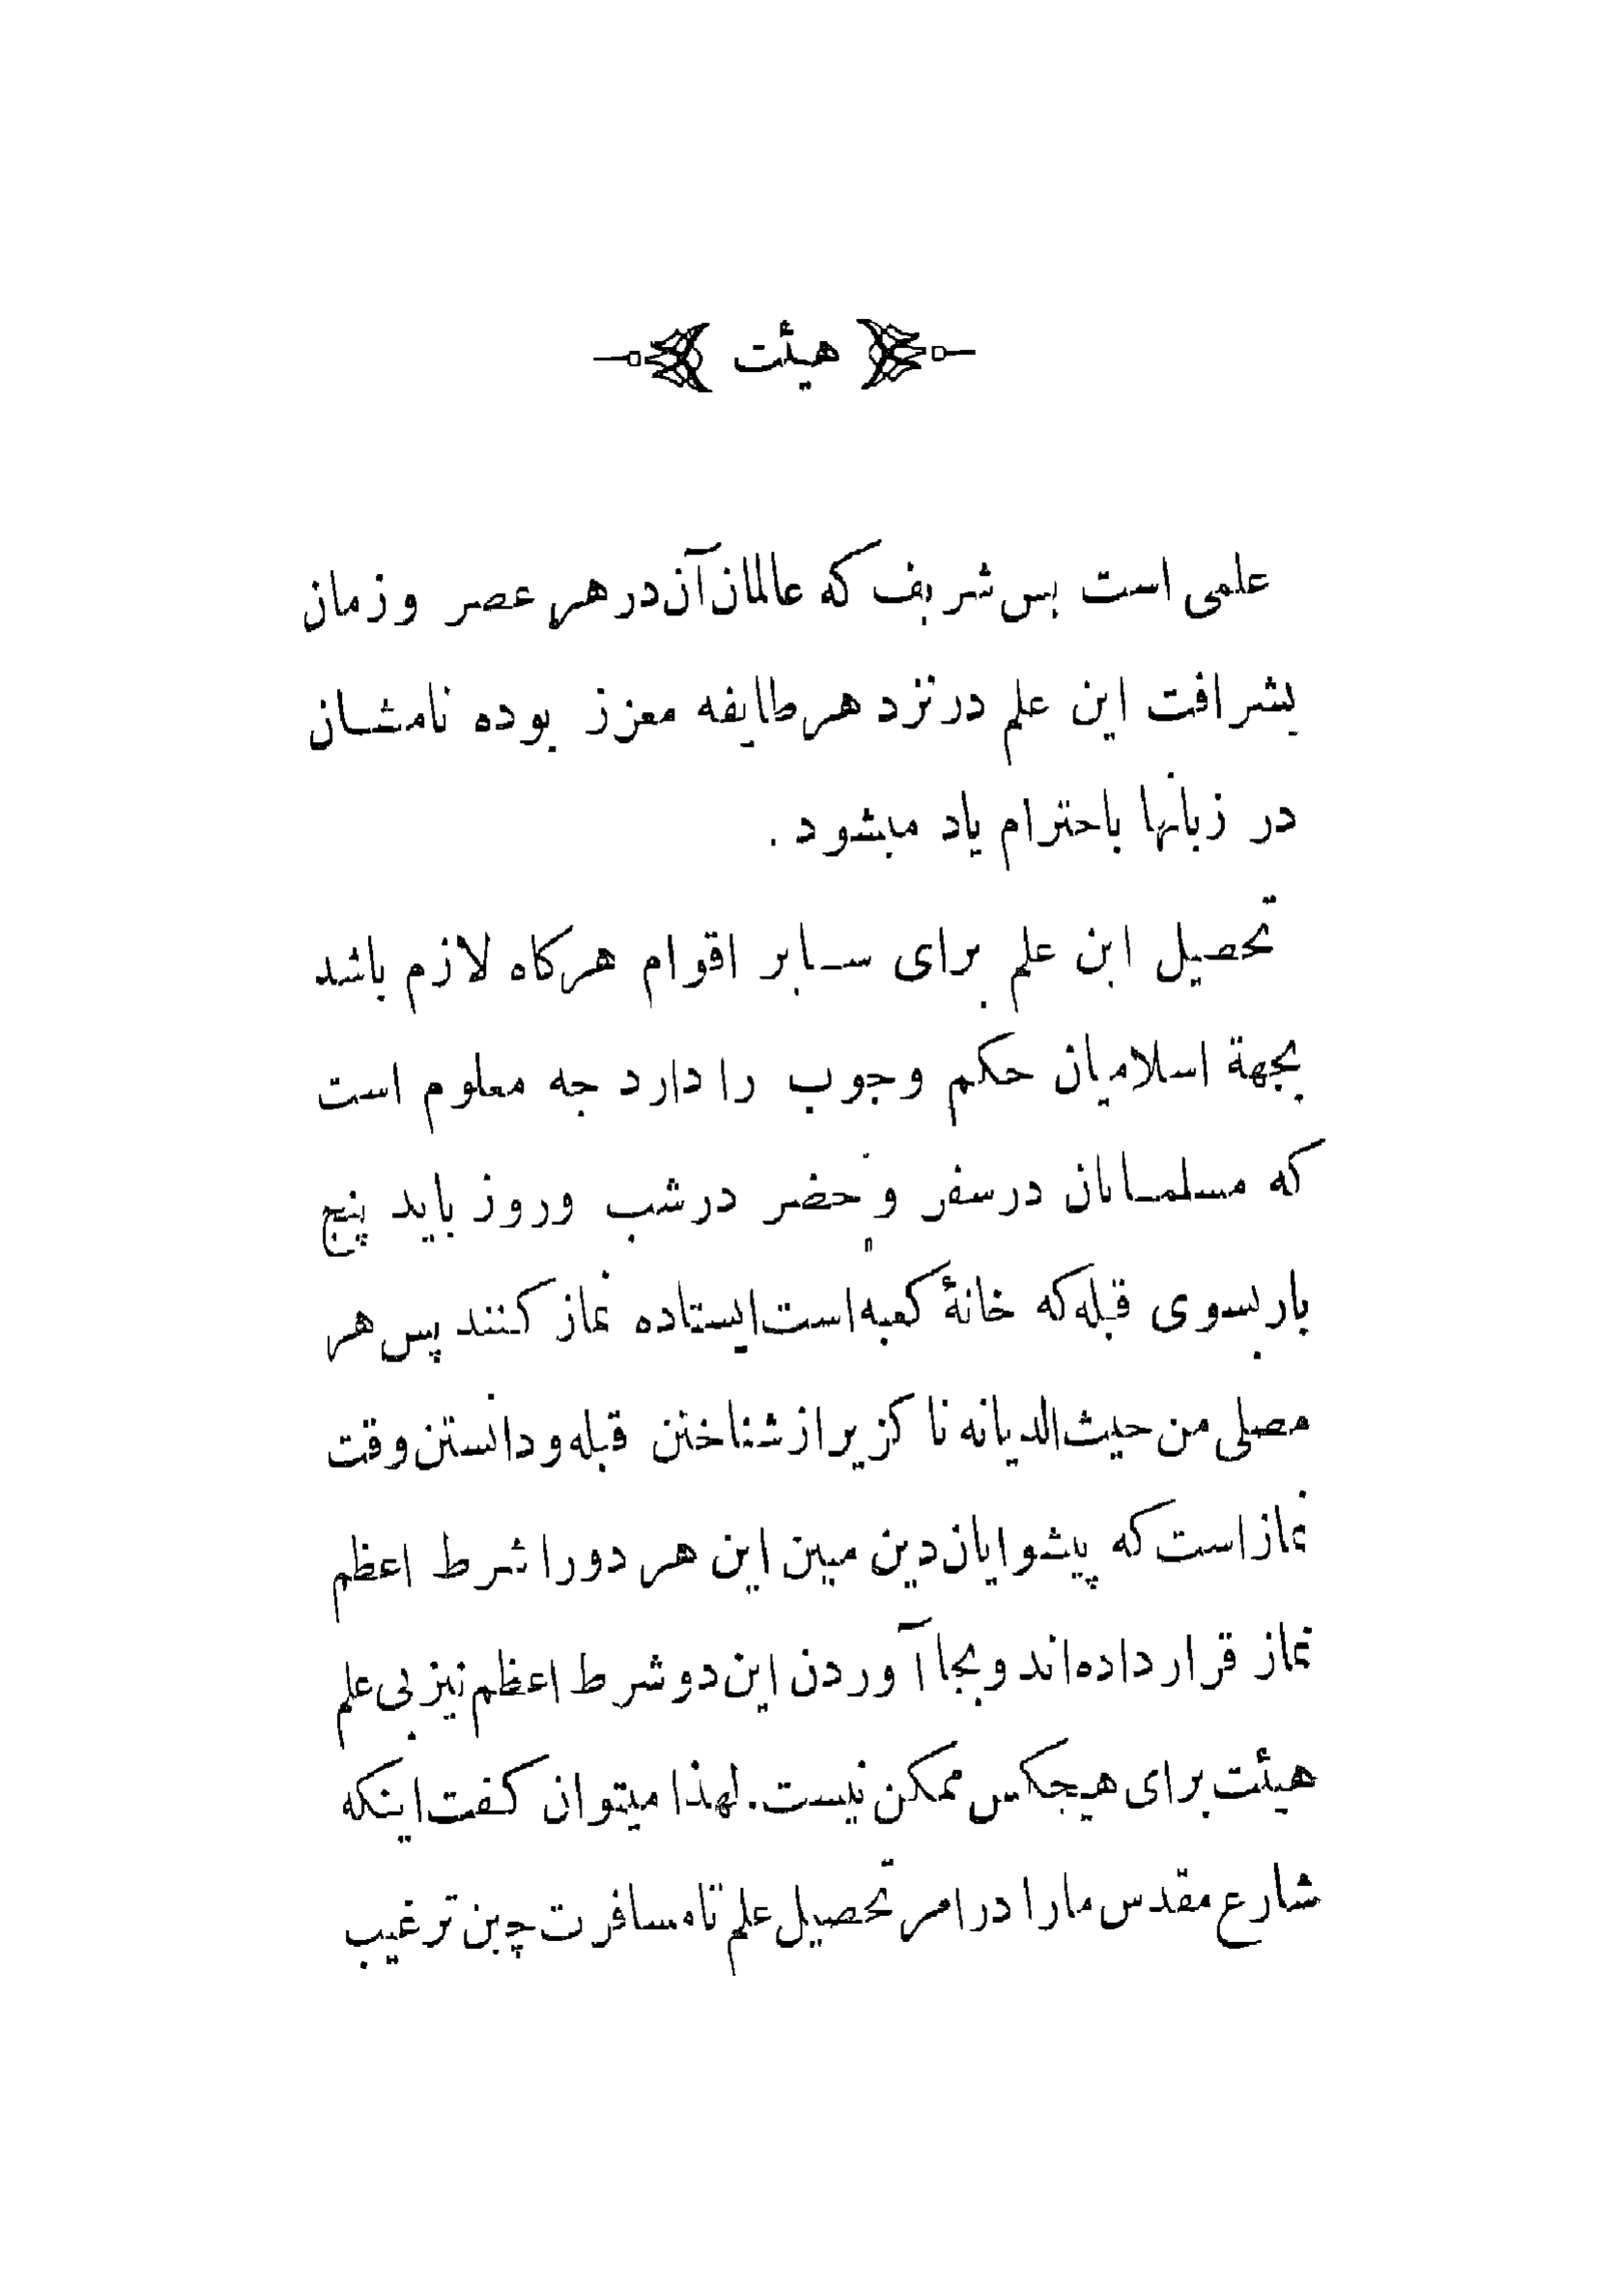 هیئت
علمی است بس شریف که عالمان آن در هر عصر و زمان
بشرافت این علم در نزد هر طایفه معزز بوده نامشان
در زبانها باحترام یاد میشود .
تحصیل این علم برای سایر اقوام هرکاه لازم باشد
بجهة اسلامیان حکم وجوب را دارد جه معلوم است
که مسلمانان در سفر و حضر در شب وروز باید پنج
بار بسوی قبله که خانهٔ کعبه است ایستاده نماز کنند پس هر
مصلی من حیث الدیانه نا کزیر از شناختن قبله و دانستن وقت
نماز است که پیشوایان دین مبین این هر دو را شرط اعظم
نماز قرار داده اند و بجا آوردن این دو شرط اعظم نیز بی علم
هیئت برای هیجکس ممکن نیست . لهذا میتوان کفت اینکه
شارع مقدس ما را در امر تحصیل علم تا مسافرت چین ترغیب